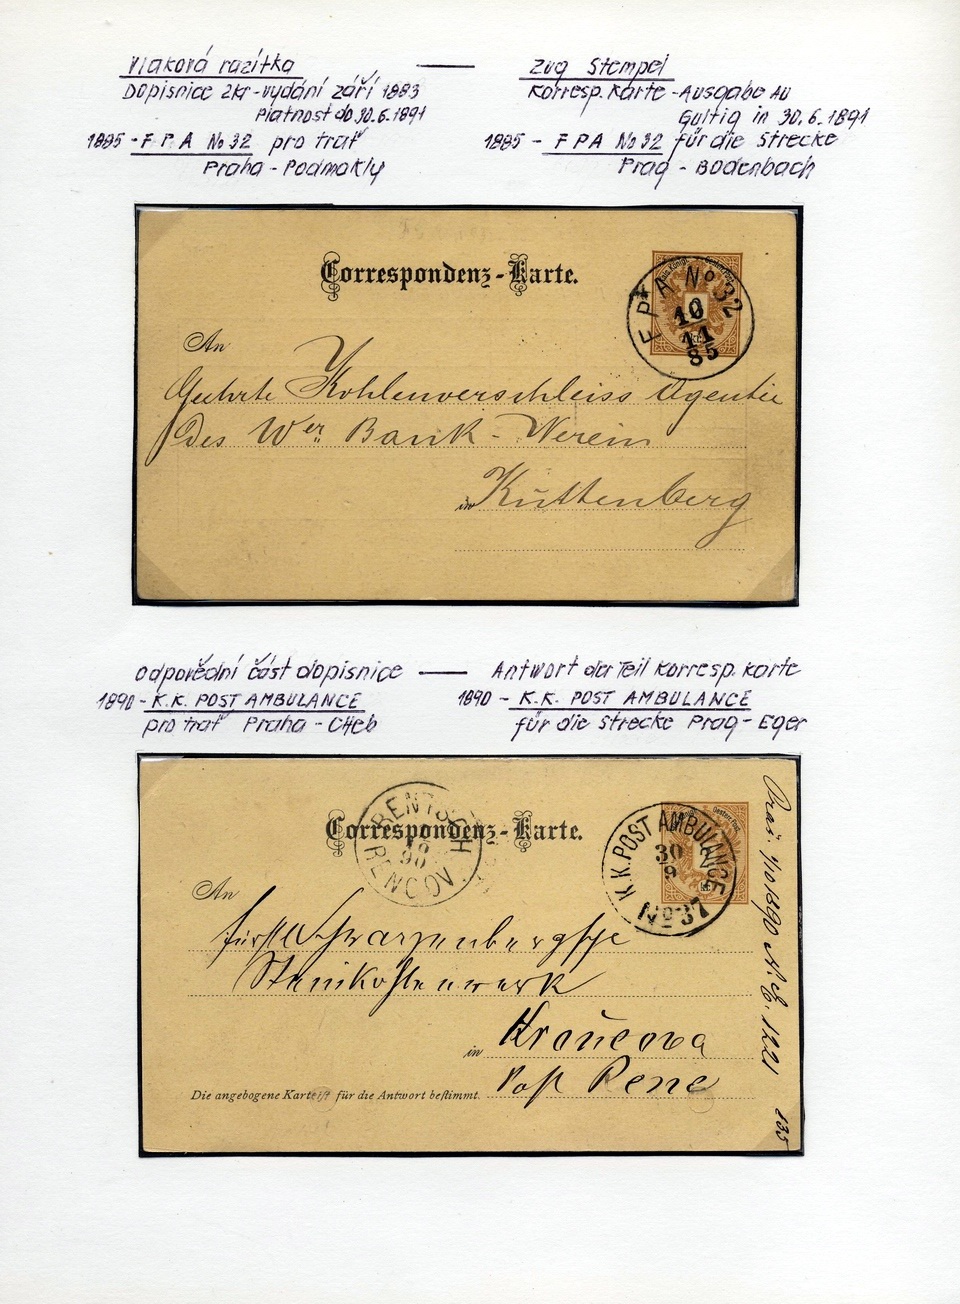 Vlaková razítka — Zug Stempel
Dopisnice 2kr - vydání září 1883
Platnost do 30.6.1891
1885 - F P A No 32 pro trať
Praha - Podmokly
Korresp. Karte - Ausgabe Au
Gültig in 30.6.1891
1885 - F P A No 32 für die Strecke
Prag - Bodenbach
Correspondenz-Karte.
F P A No 32
10
11
85
An
Geehrte Kohlenverschleiss Agentie
des Wer Bank - Verein
in Kuttenberg
Odpovědní část dopisnice — Antwort der Teil Korresp. Karte
1890 - K.K. POST AMBULANCE
pro trať Praha - Cheb
1890 - K.K. POST AMBULANCE
für die Strecke Prag - Eger
Correspondenz-Karte.
RENTSCH
90
RENČOV
K.K. POST AMBULANCE
30
9
No 37
An
fürstl Schwarzenbergsche
Steinkohlenwerk
in Kroučova
Post Renč
Die angebogene Karte ist für die Antwort bestimmt.
1/10 890 1221
135